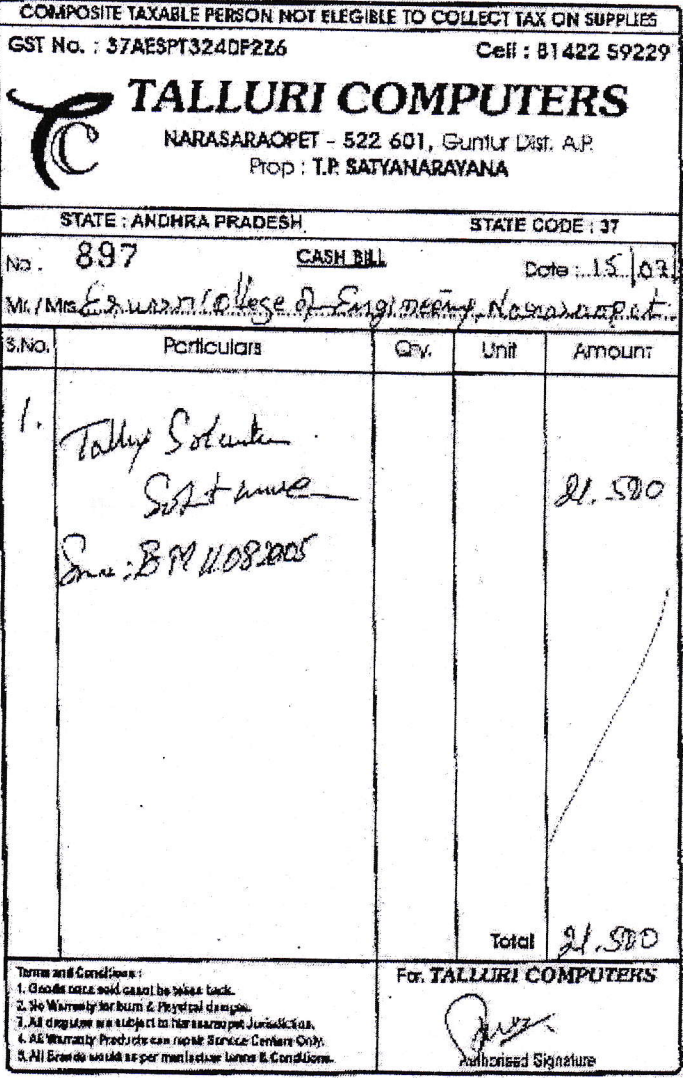 COMPOSITE TAXABLE PERSON NOT ELEGIBLE TO COLLECT TAX ON SUPPLIES
GST No. : 37AESPT3240F2Z6 Cell : 81422 59229
TALLURI COMPUTERS
TC
NARASARAOPET - 522 601, Guntur Dist. A.P.
Prop : T.P. SATYANARAYANA
STATE : ANDHRA PRADESH STATE CODE : 37
No. 897 CASH BILL Date : 15/07/
Mr. / Mrs. College of Engineering, Narasaraopet.
S.No. Particulars Qty. Unit Amount
1. Tally
Software 21.500
BM11082005
Total 21.500
Terms and Conditions : For. TALLURI COMPUTERS
1. Goods once sold cannot be taken back.
2. No Warranty for burn & Physical damages.
3. All disputes are subject to Narasaraopet Jurisdiction.
4. All Warranty Products can repair Service Centers Only.
5. All Brands would as per terms & Conditions.
Authorised Signature